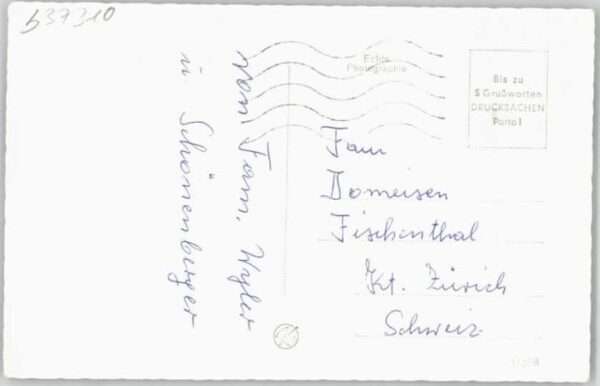 537310
von Fam. Wyler
u Schönenberger
Echte
Photographie
Bis zu
5 Grußworten
DRUCKSACHEN
Porto!
Fam
Domeisen
Fischenthal
Kt. Zürich
Schweiz